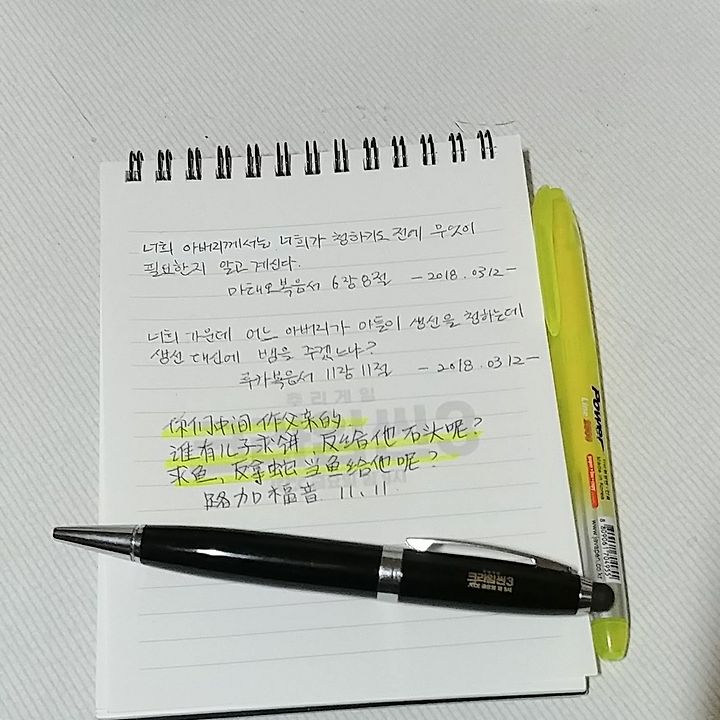 너희 아버지께서는 너희가 청하기도 전에 무엇이
필요한지 알고 계신다.
마태오복음서 6장 8절 - 2018.03.12 -
너희 가운데 어느 아버지가 아들이 생선을 청하는데
생선 대신에 뱀을 주겠느냐?
루카복음서 11장 11절 - 2018.03.12 -
추리게임
你们中间作父亲的
谁有儿子求饼，反给他石头呢？
求鱼，反拿蛇当鱼给他呢？
路加福音 11.11
크라임씬3
POWER
Line
www.javapen.co.kr